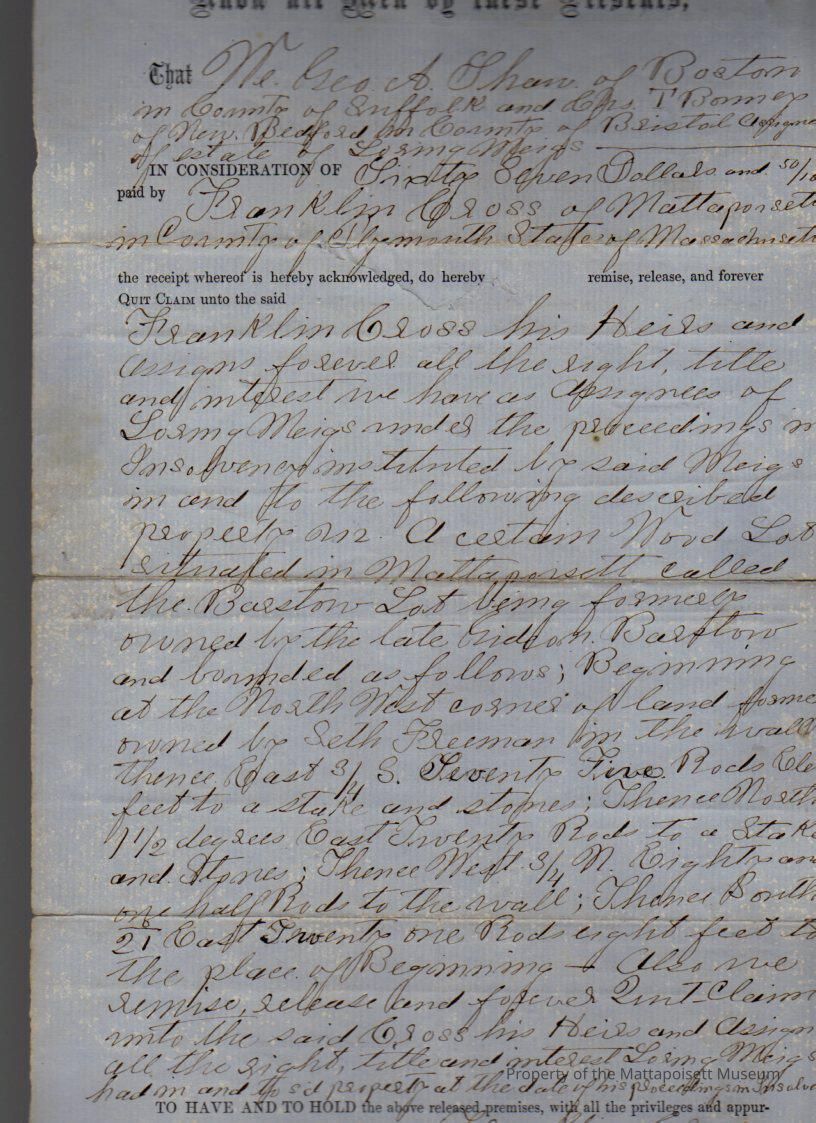 Know all Men by these Presents,
That We. Geo. A. Shaw. of Boston
in County of Suffolk and Chs. T Bonney
of New. Bedford in County of Bristol Assigne
of estate of Loring Meigs
IN CONSIDERATION OF Sixty Seven Dollars and 50/10
paid by
Franklin Cross of Mattapoisett
in County of Plymouth State of Massachusett
the receipt whereof is hereby acknowledged, do hereby remise, release, and forever
QUIT CLAIM unto the said
Franklin Cross his Heirs and
assigns forever all the right, title
and interest we have as Assignees of
Loring Meigs under the proceedings in
Insolvency instituted by said Meigs
in and to the following described
property viz. A certain Wood Lot
situated in Mattapoisett called
the Barstow Lot being formerly
owned by the late Gideon. Barstow
and bounded as follows; Beginning
at the North West corner of land forme
owned by Seth Freeman in the wall
thence East 3/4 S. Seventy Five Rods Ele
feet to a stake and stones; Thence North
1 1/2 degrees East Twenty Rods to a Stake
and Stones; Thence West 3/4 N. Eighty an
one half Rods to the wall; Thence South
East Twenty one Rods eight feet to
the place of Beginning — Also we
remise, release and forever Quit-Claim
unto the said Cross his Heirs and Assign
all the right, title and interest Loring Meigs
had in and to sd property at the date of his proceedings in Insolv
Property of the Mattapoisett Museum
TO HAVE AND TO HOLD the above released premises, with all the privileges and appur-